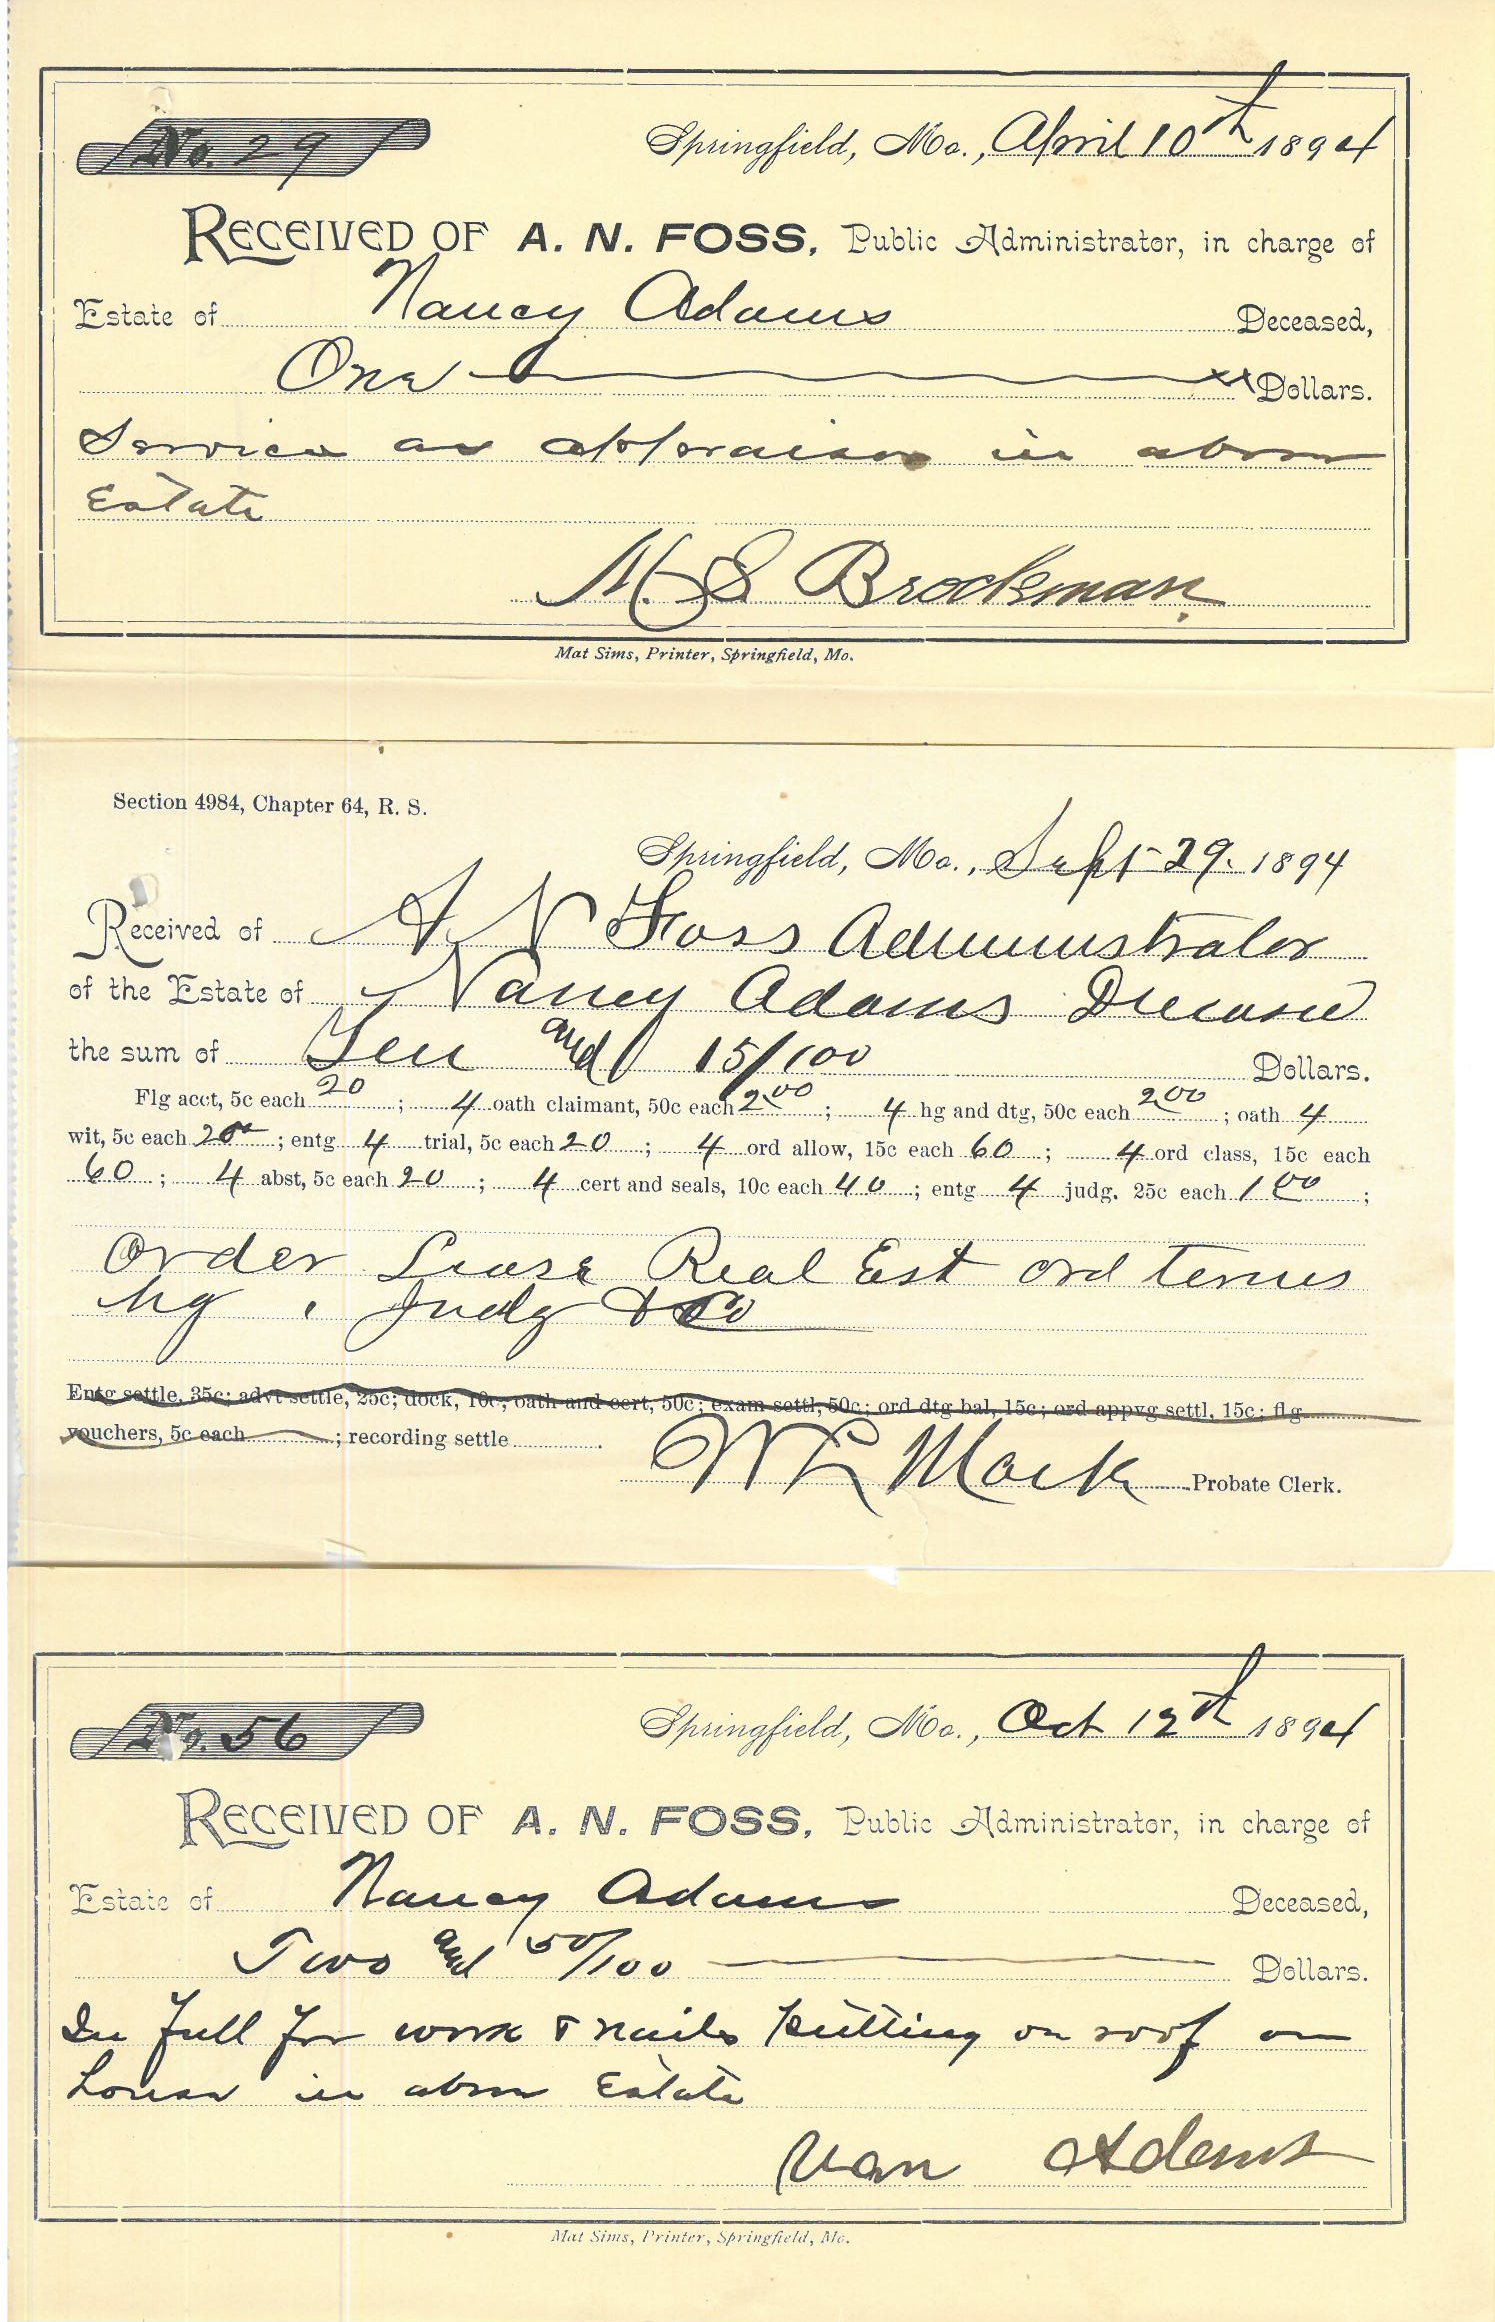 No. 29
Springfield, Mo., April 10th 1894
RECEIVED OF A. N. FOSS, Public Administrator, in charge of
Estate of Nancy Adams Deceased,
One Dollars.
Service as appraiser in above
Estate
M. S. Brockman
Mat Sims, Printer, Springfield, Mo.
Section 4984, Chapter 64, R. S.
Springfield, Mo., Sept 29. 1894
Received of A N Foss Administrator
of the Estate of Nancy Adams Deceased
the sum of Ten and 15/100 Dollars.
Flg acct, 5c each 20; 4 oath claimant, 50c each 2.00; 4 hg and dtg, 50c each 2.00; oath 4
wit, 5c each 20; entg 4 trial, 5c each 20; 4 ord allow, 15c each 60; 4 ord class, 15c each
60; 4 abst, 5c each 20; 4 cert and seals, 10c each 40; entg 4 judg. 25c each 1 00;
Order Lease Real Est ord terms
hg, Judg
Entg settle, 35c; advt settle, 25c; dock, 10c; oath and cert, 50c; exam settl, 50c; ord dtg bal, 15c; ord appvg settl, 15c; flg
vouchers, 5c each ; recording settle .
Probate Clerk.
No. 56
Springfield, Mo., Oct 12th 1894
RECEIVED OF A. N. FOSS, Public Administrator, in charge of
Estate of Nancy Adams Deceased,
Two and 50/100 Dollars.
In full for work & nails putting on roof on
house in above Estate
Van Adams
Mat Sims, Printer, Springfield, Mo.